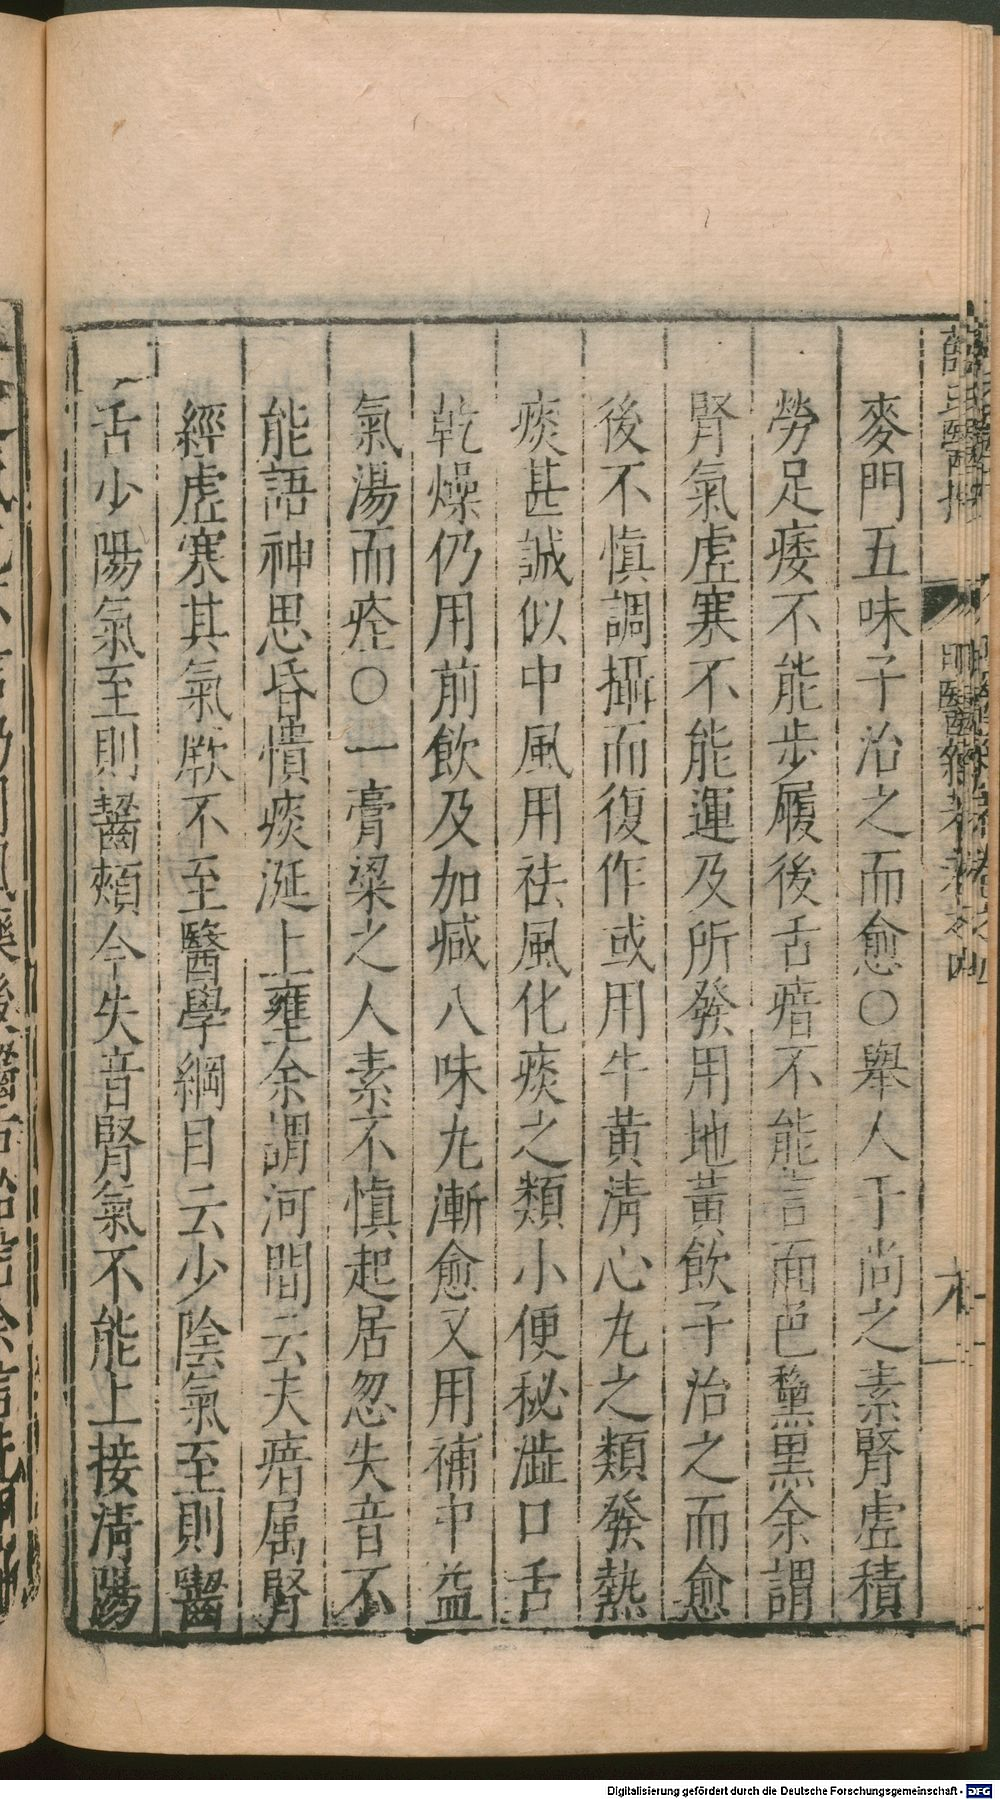 麥門五味子治之而愈○舉人于尚之素腎虛積
勞足痿不能步履後舌瘖不能言面色黧黑余謂
腎氣虛寒不能運及所發用地黃飲子治之而愈
後不慎調攝而復作或用牛黃清心丸之類發熱
痰甚誠似中風用祛風化痰之類小便秘澁口舌
乾燥仍用前飲及加减八味丸漸愈又用補中益
氣湯而痊○一膏粱之人素不慎起居忽失音不
能語神思昏憒痰涎上壅余謂河間云夫瘖属腎
經虛寒其氣厥不至醫學綱目云少陰氣至則齧
舌少陽氣至則齧頰今失音腎氣不能上接清陽
Digitalisierung gefördert durch die Deutsche Forschungsgemeinschaft - DFG